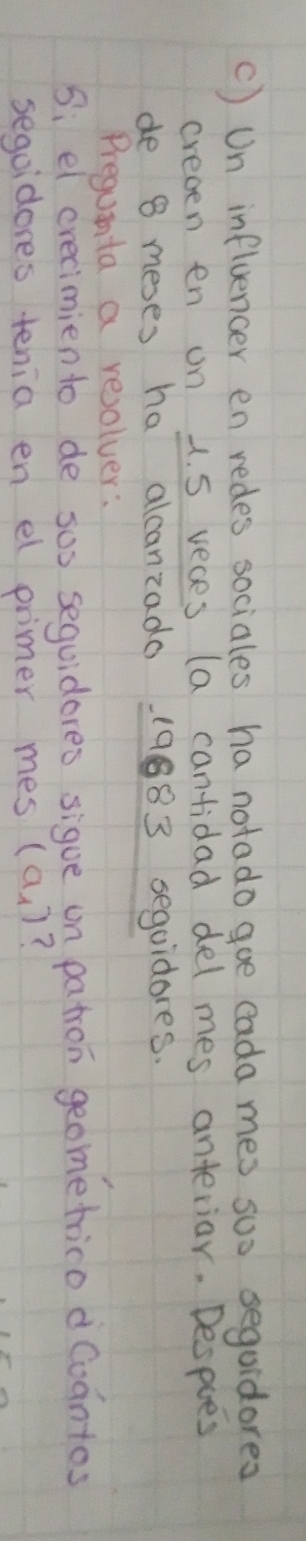 c) Un influencer en redes sociales ha notado que cada mes sus seguidores
crecen en un 1.5 veces la cantidad del mes anterior. Después
de 8 meses ha alcanzado 19683 seguidores.
Pregunta a resolver:
Si el crecimiento de sus seguidores sigue un patrón geométrico ¿Cuántos
seguidores tenía en el primer mes (a₁)?